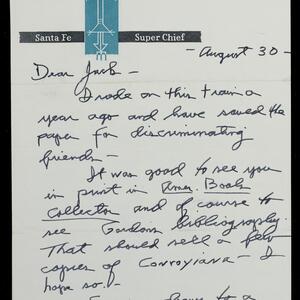 Santa Fe Super Chief
- August 30 -
Dear Jack -
I rode on this train a
year ago and have saved the
paper for discriminating
friends -
It was good to see you
in print in Amer. Book
Collector and of course to
see Gordon's bibliography.
That should sell a few
copies of Conroyiana - I
hope so. -
have to a